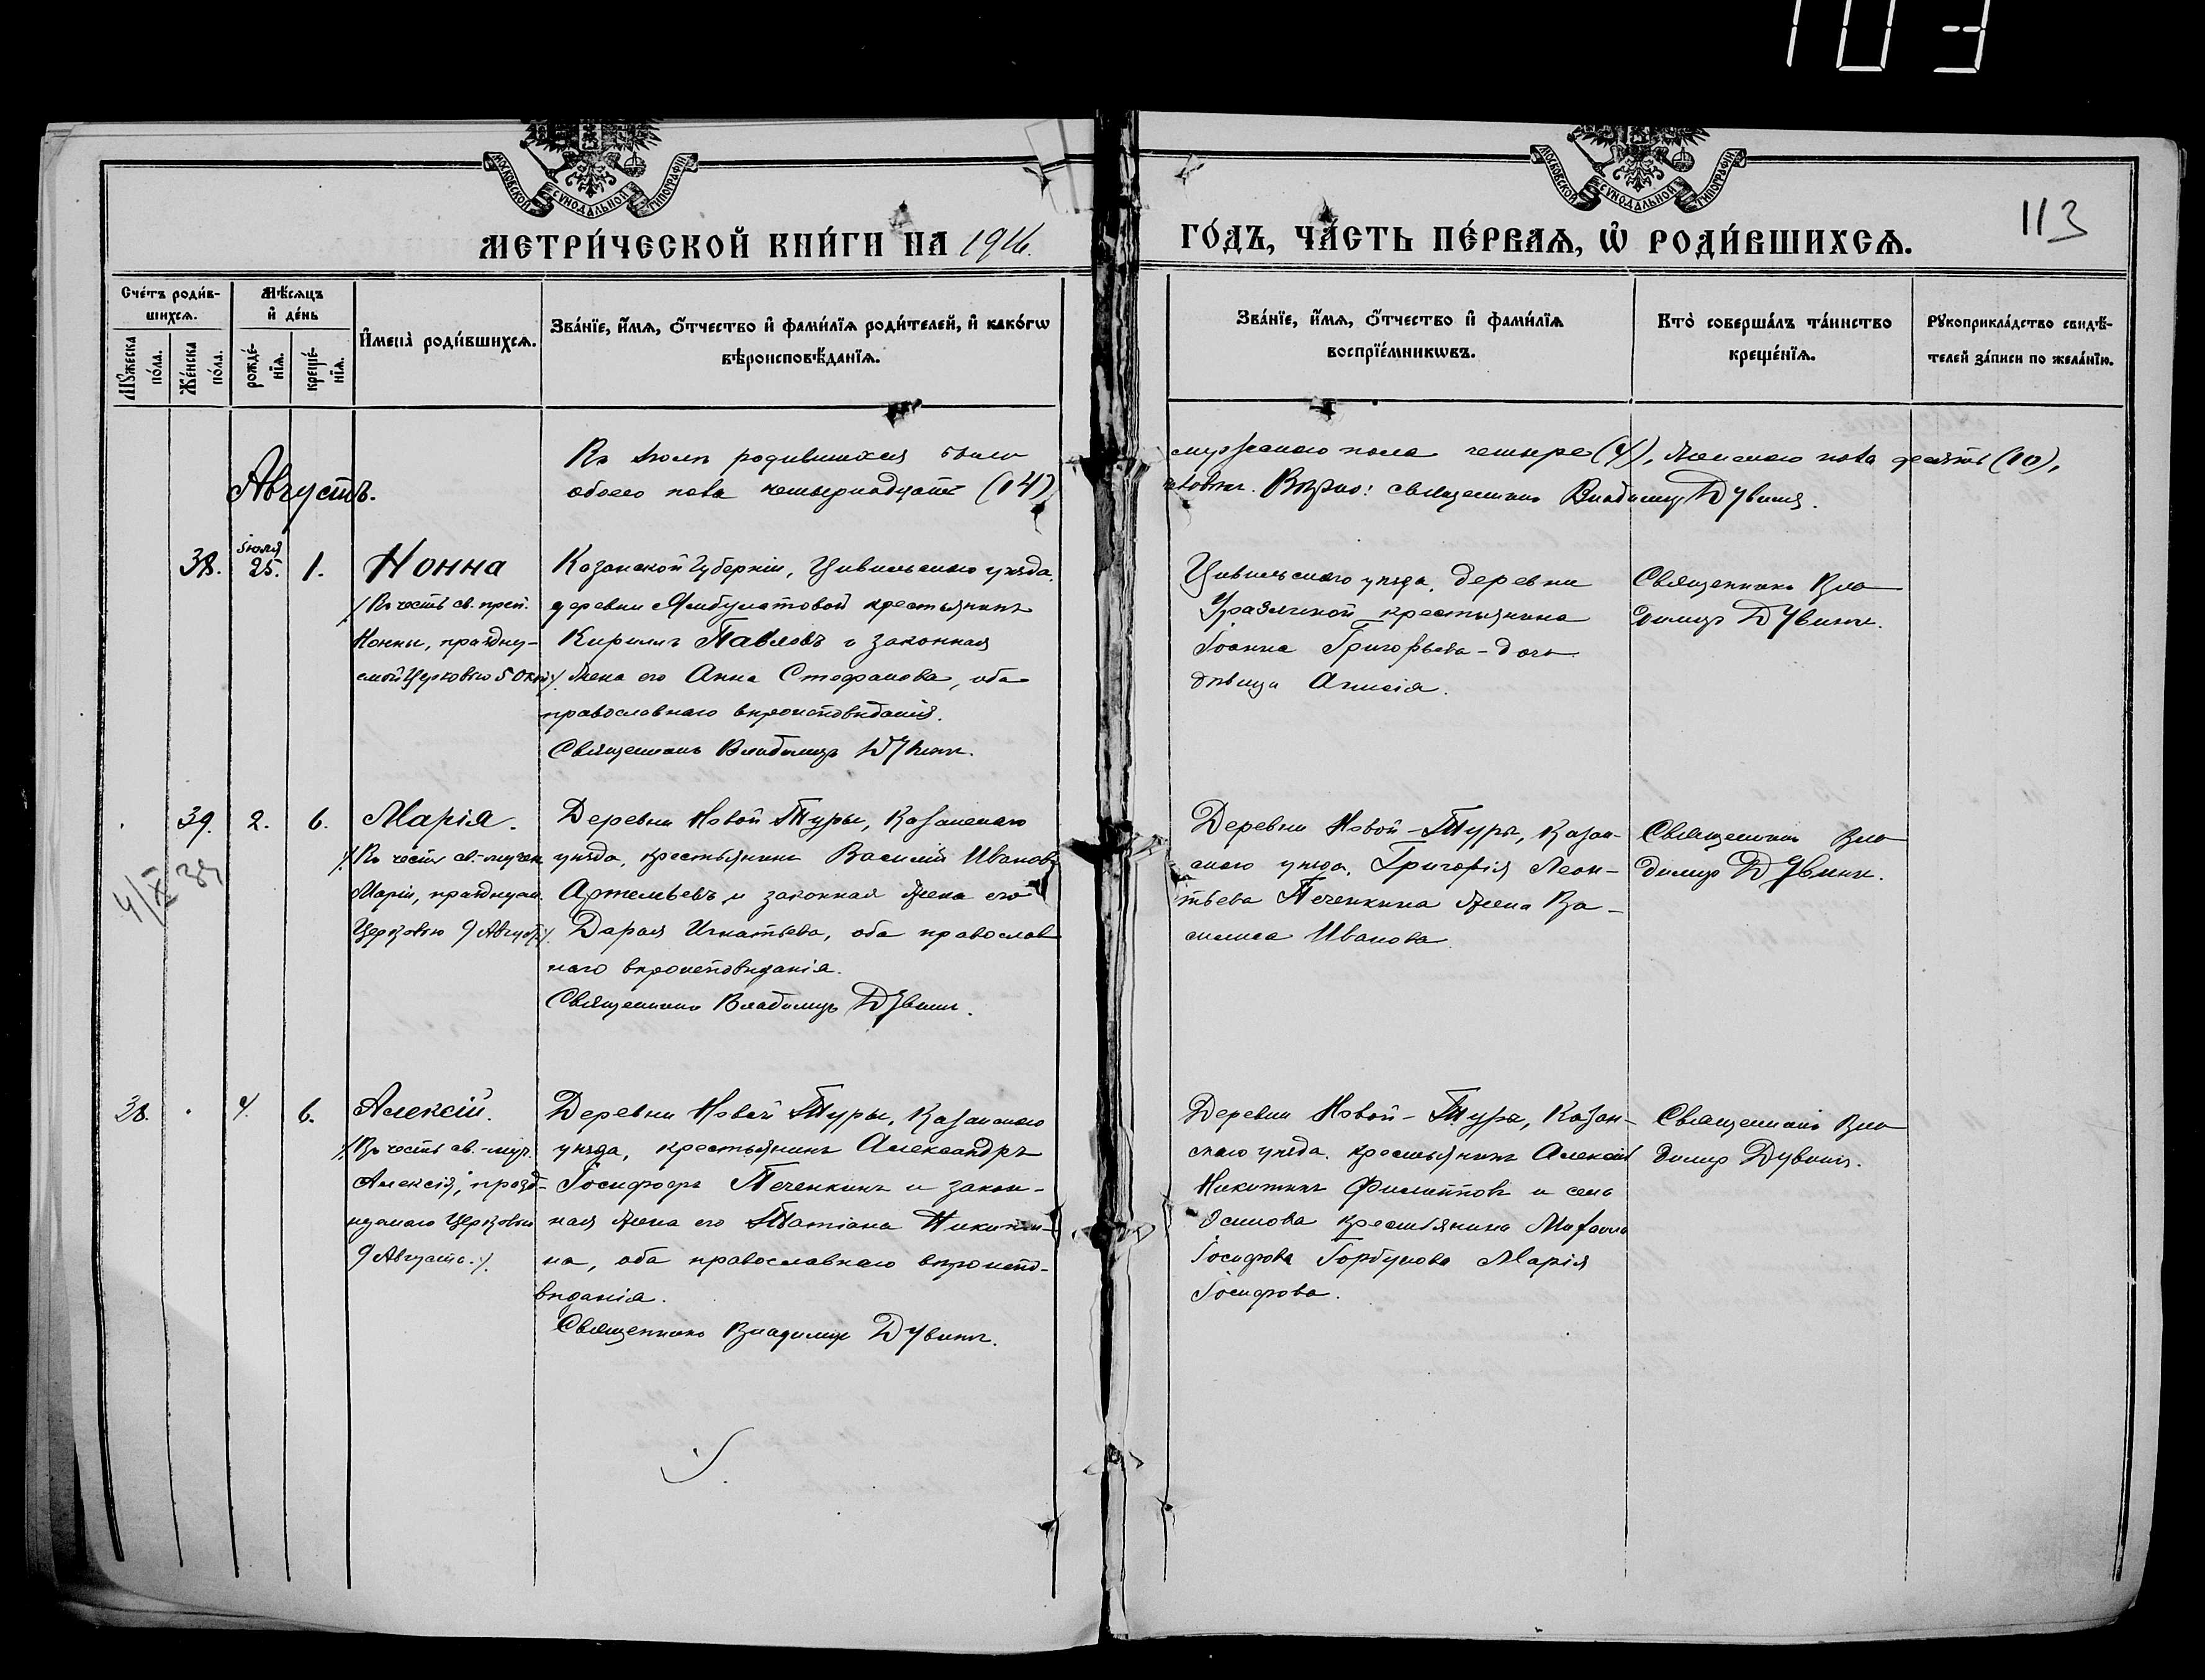 103
МОСКОВСКОЙ СѴНОДАЛЬНОЙ ТИПОГРАФІИ
МОСКОВСКОЙ СѴНОДАЛЬНОЙ ТИПОГРАФІИ
113
МЕТРИ́ЧЕСКОЙ КНИ́ГИ НА 1916.
ГО́ДЪ, ЧА́СТЬ ПЕ́РВАѦ, Ѡ҆ РОДИ́ВШИХСѦ.
Сче́тъ роди́в-
шихсѧ.
Мѣ́сѧцъ
и҆ де́нь
Мꙋ́жеска
по́ла.
Же́нска
по́ла.
рожде́-
нїѧ.
креще́-
нїѧ.
И҆мена̀ роди́вшихсѧ.
Зва́нїе, и҆́мѧ, ѻ҆́тчество и҆ фами́лїѧ роди́телей, и҆ како́гѡ
вѣроисповѣ́данїѧ.
Зва́нїе, и҆́мѧ, ѻ҆́тчество и҆ фами́лїѧ
воспрїе́мникѡвъ.
Кто̀ соверша́лъ та́инство
креще́нїѧ.
Рꙋкоприкла́дство свидѣ́-
телей за́писи по жела́нїю.
Въ Іюлѣ родившихся было
обоего пола четырнадцать (14)
мужескаго пола четыре (4), женскаго пола десять (10),
Вѣрно: священникъ Владиміръ Дувинъ.
Августъ.
38. Іюля 25. 1. Нонна
/Въ честь св. преп.
Нонны, праздну-
емой Церковію 5 Окт./
Казанской Губерніи, Цивильскаго уѣзда,
деревни Ямбулатовой крестьянинъ
Кириллъ Павловъ и законная
жена его Анна Стефанова, оба
православнаго вѣроисповѣданія.
Священникъ Владиміръ Дувинъ.
Цивильскаго уѣзда, деревни
крестьянина
Іоанна Григорьева - дочь
дѣвица Агнисія.
Священникъ Вла
диміръ Дувинъ.
39. 2. 6. Марія.
/Въ честь св.-мучен.
Маріи, празднуем.
Церковію 9 Августа/.
4/X 39
Деревни Новой Туры, Казанскаго
уѣзда, крестьянинъ Василій Ивановъ
Артемьевъ и законная жена его
Дарья Игнатьева, оба православ
наго вѣроисповѣданія.
Священникъ Владиміръ Дувинъ.
Деревни Новой-Туры, Казан-
скаго уѣзда, Григорія Леон-
тьева Печенкина жена Ва-
силиса Иванова.
Священникъ Вла
диміръ Дувинъ.
38. 4. 6. Алексій.
/Въ честь св.-муч.
Алексія, празд-
нуемаго Церковію
9 Августа./.
Деревни Новой Туры, Казанскаго
уѣзда, крестьянинъ Александръ
Іосифовъ Печенкинъ и закон-
ная жена его Татіана Никити-
на, оба православнаго вѣроиспо-
вѣданія.
Священникъ Владиміръ Дувинъ.
Деревни Новой-Туры, Казан-
скаго уѣзда, крестьянинъ Алексій
Никитинъ Филипповъ и села
Осинова крестьянина Михаила
Іосифова Горбунова Марія
Іосифова.
Священникъ Вла
диміръ Дувинъ.